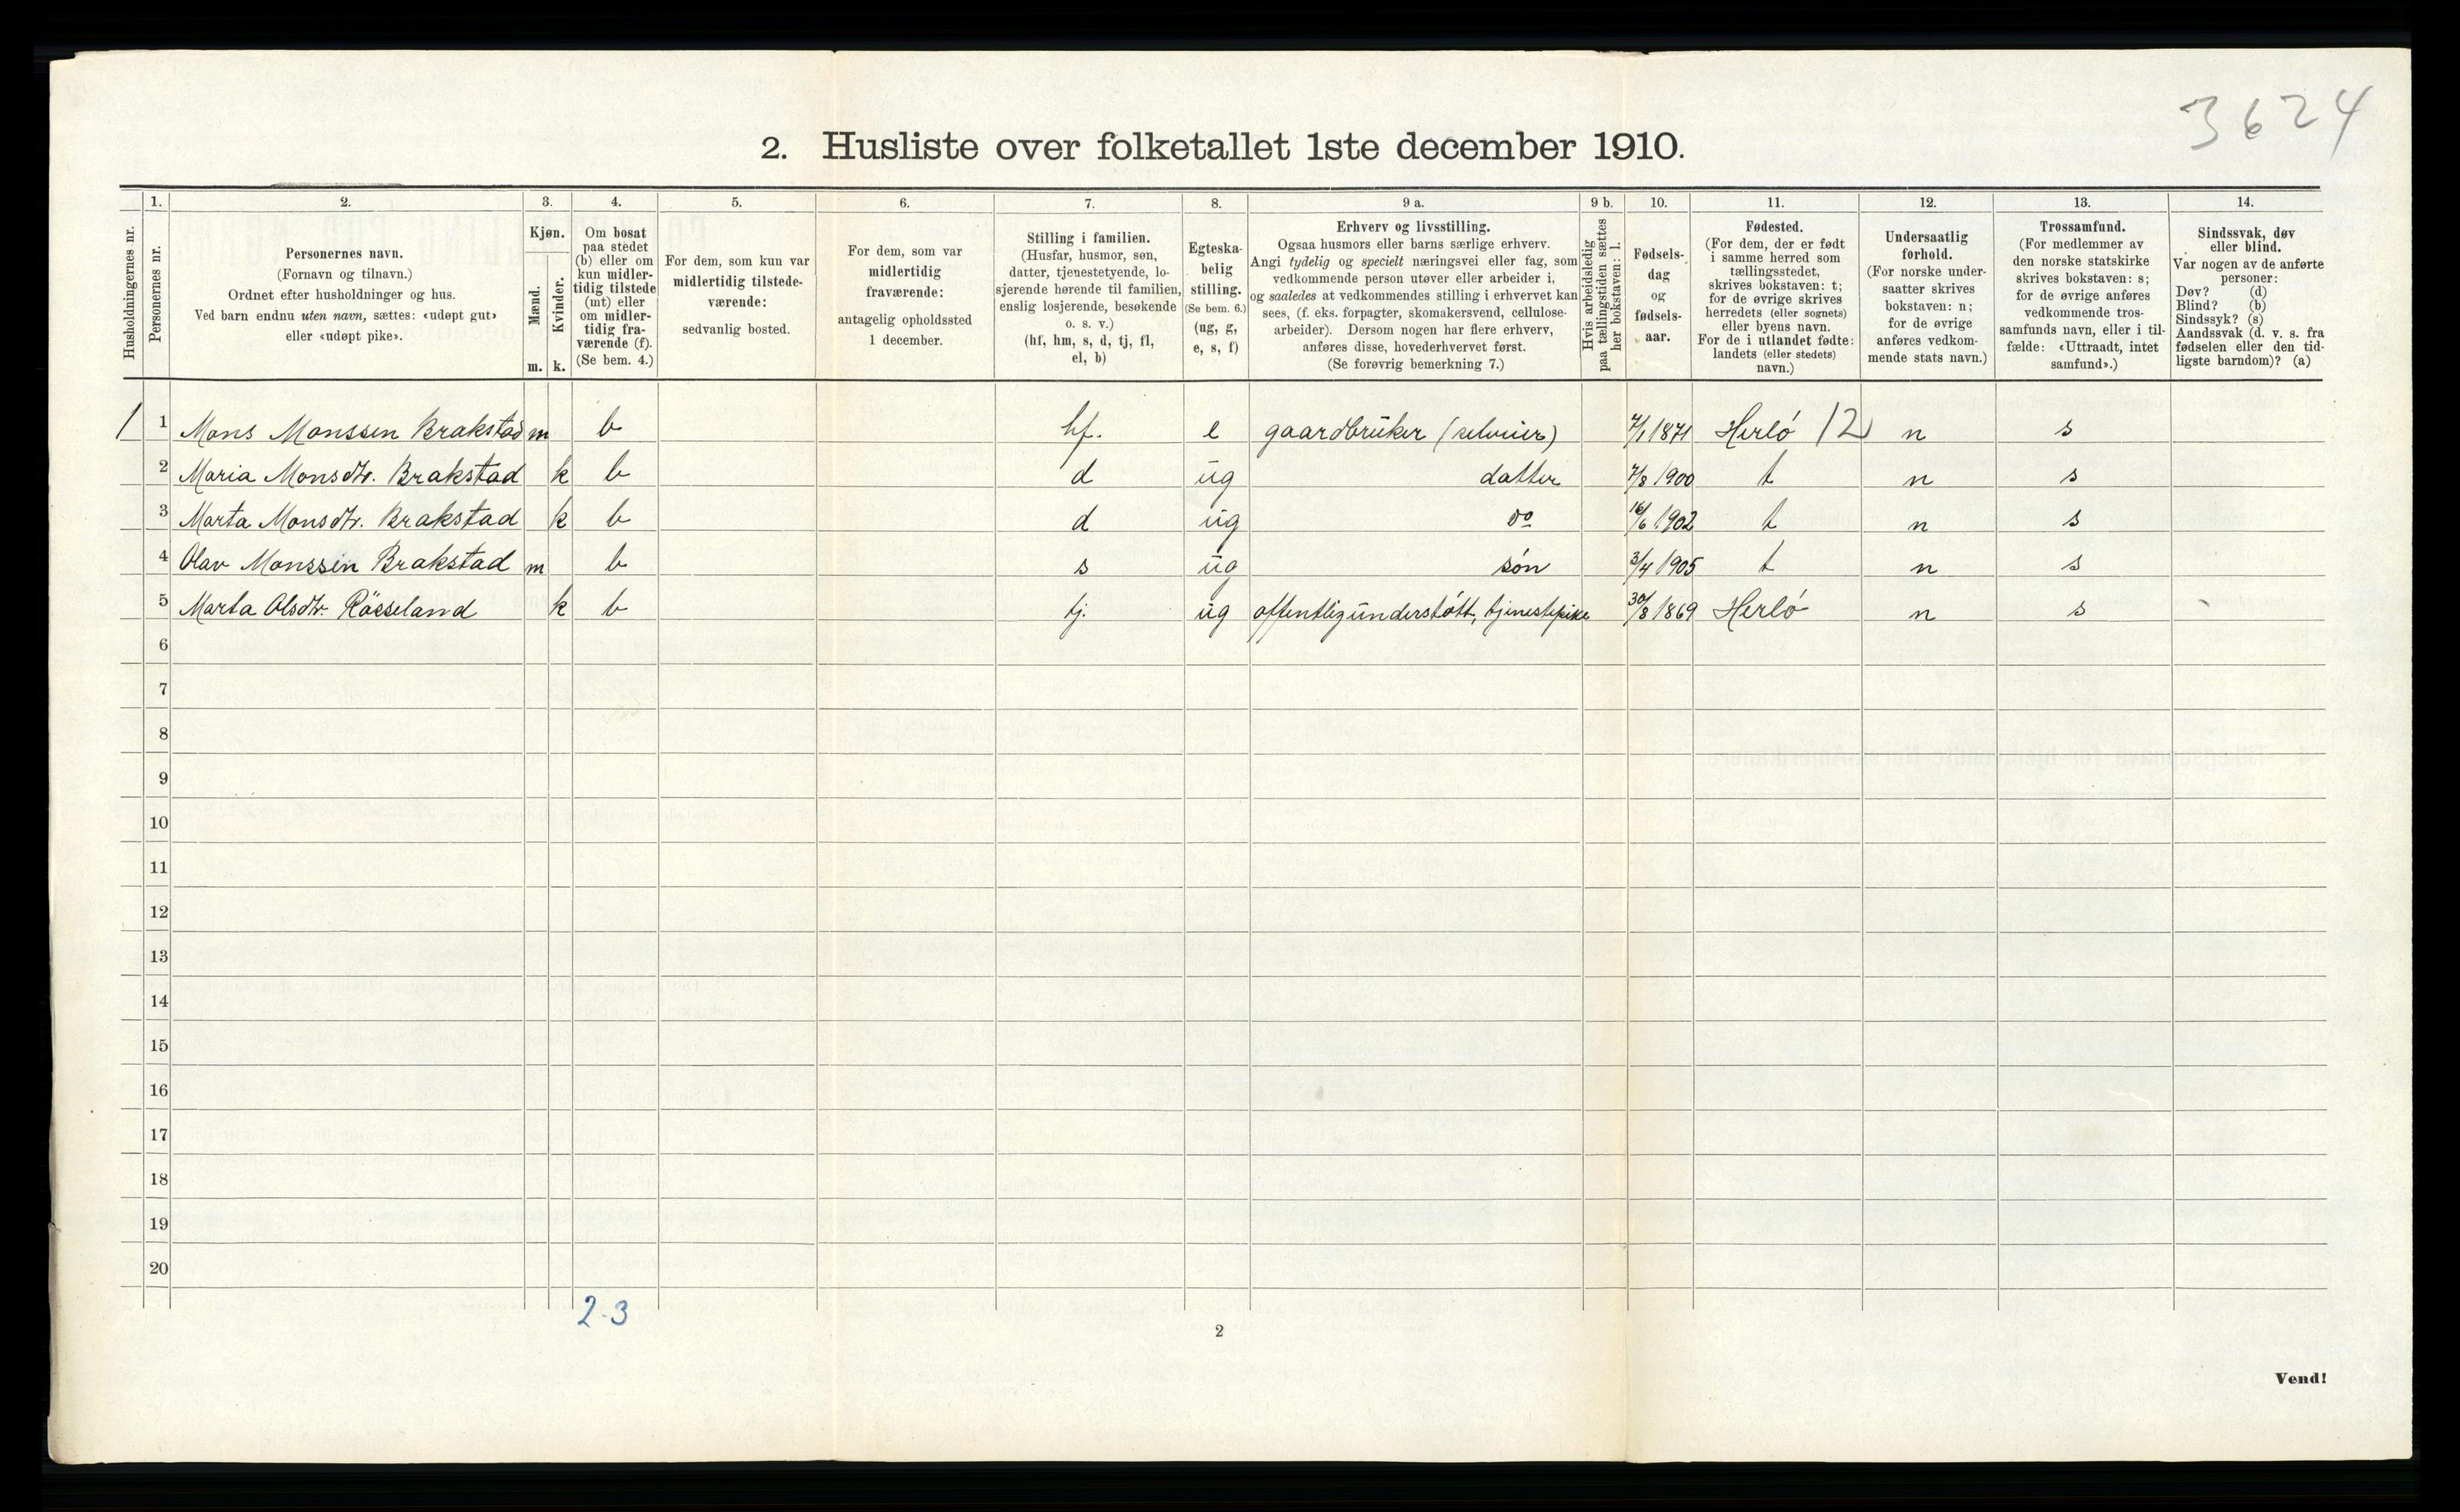 3624
2. Husliste over folketallet 1ste december 1910.
1. 2. 3. 4. 5. 6. 7. 8. 9 a. 9 b. 10. 11. 12. 13. 14.
Husholdningernes nr.
Personernes nr.
Personernes navn.
(Fornavn og tilnavn.)
Ordnet efter husholdninger og hus.
Ved barn endnu uten navn, sættes: «udøpt gut»
eller «udøpt pike».
Kjøn.
Mænd.
Kvinder.
m. k.
Om bosat
paa stedet
(b) eller om
kun midler-
tidig tilstede
(mt) eller
om midler-
tidig fra-
værende (f).
(Se bem. 4.)
For dem, som kun var
midlertidig tilstede-
værende:
sedvanlig bosted.
For dem, som var
midlertidig
fraværende:
antagelig opholdssted
1 december.
Stilling i familien.
(Husfar, husmor, søn,
datter, tjenestetyende, lo-
sjerende hørende til familien,
enslig losjerende, besøkende
o. s. v.)
(hf, hm, s, d, tj, fl,
el, b)
Egteska-
belig
stilling.
(Se bem. 6.)
(ug, g,
e, s, f)
Erhverv og livsstilling.
Ogsaa husmors eller barns særlige erhverv.
Angi tydelig og specielt næringsvei eller fag, som
vedkommende person utøver eller arbeider i,
og saaledes at vedkommendes stilling i erhvervet kan
sees, (f. eks. forpagter, skomakersvend, cellulose-
arbeider). Dersom nogen har flere erhverv,
anføres disse, hovederhvervet først.
(Se forøvrig bemerkning 7.)
Hvis arbeidsledig
paa tællingstiden sættes
her bokstaven: l.
Fødsels-
dag
og
fødsels-
aar.
Fødested.
(For dem, der er født
i samme herred som
tællingsstedet,
skrives bokstaven: t;
for de øvrige skrives
herredets (eller sognets)
eller byens navn.
For de i utlandet fødte:
landets (eller stedets)
navn.)
Undersaatlig
forhold.
(For norske under-
saatter skrives
bokstaven: n;
for de øvrige
anføres vedkom-
mende stats navn.)
Trossamfund.
(For medlemmer av
den norske statskirke
skrives bokstaven: s;
for de øvrige anføres
vedkommende tros-
samfunds navn, eller i til-
fælde: «Uttraadt, intet
samfund».)
Sindssvak, døv
eller blind.
Var nogen av de anførte
personer:
Døv? (d)
Blind? (b)
Sindssyk? (s)
Aandssvak (d. v. s. fra
fødselen eller den tid-
ligste barndom)? (a)
1 1 Mons Monssen Brakstad m b hf. e gaardbruker (selveier) 7/1 1871 Herló 12 n s
2 Maria Monsdtr. Brakstad k b d ug datter 7/8 1900 t n s
3 Marta Monsdtr. Brakstad k b d ug do 16/6 1902 t n s
4 Olav Monssen Brakstad m b s ug søn 3/4 1905 t n s
5 Marta Olsdtr. Rässeland k b tj. ug offentlig understøtt, tjenestepike 30/8 1869 Herló n s
6
7
8
9
10
11
12
13
14
15
16
17
18
19
20
2-3
2
Vend!